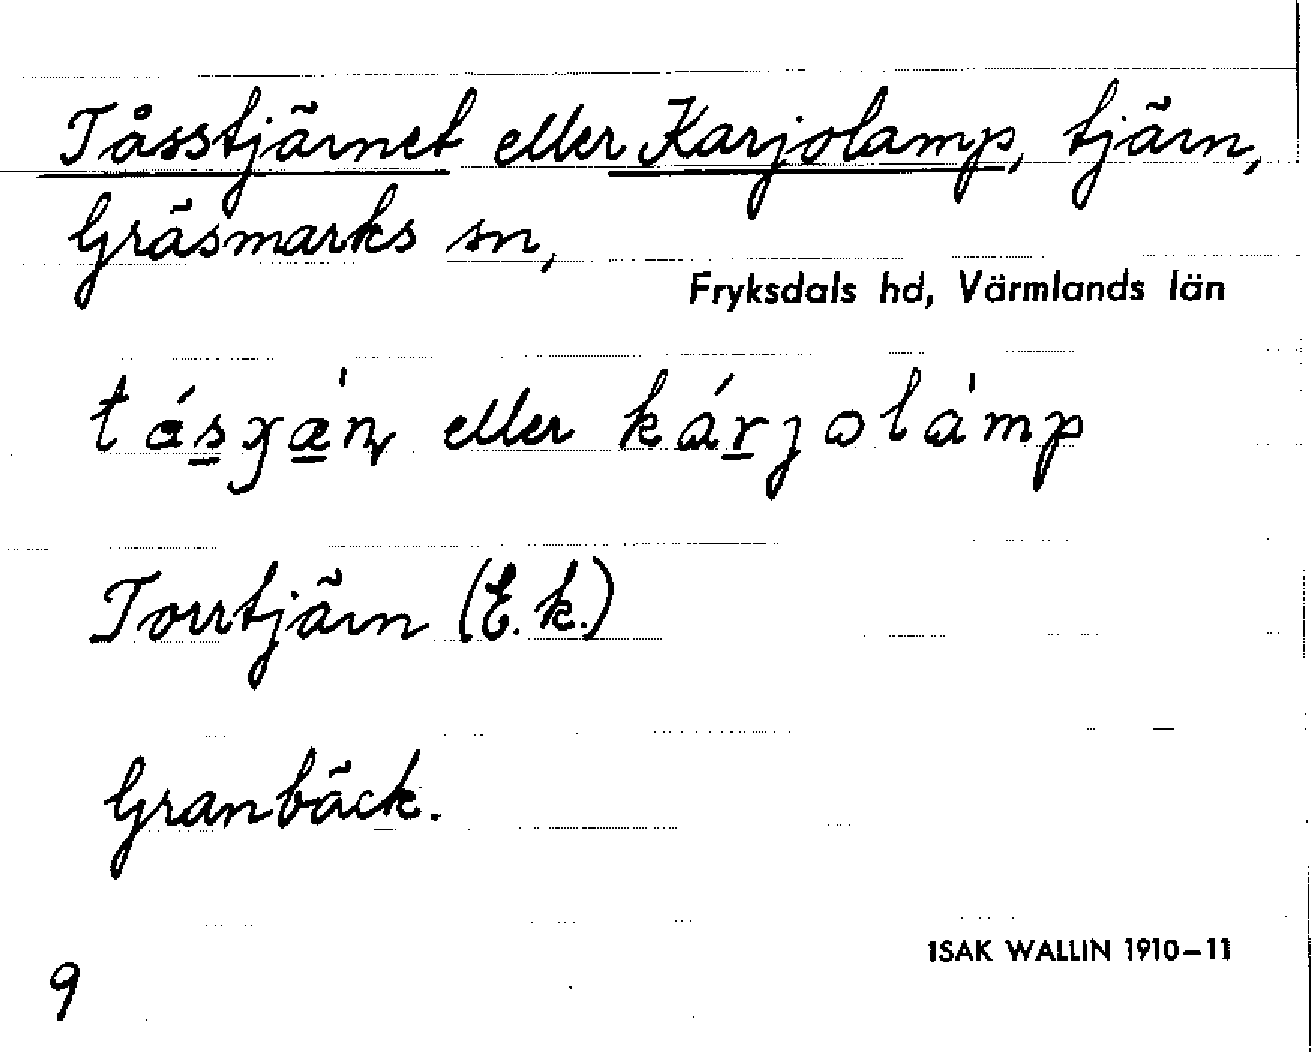 Tåsstjärnet eller Karjolamp, tjärn,
Gräsmarks sn,
Fryksdals hd, Värmlands län
eller
Torrtjärn (E.k.)
Granbäck.
ISAK WALLIN 1910–11
9